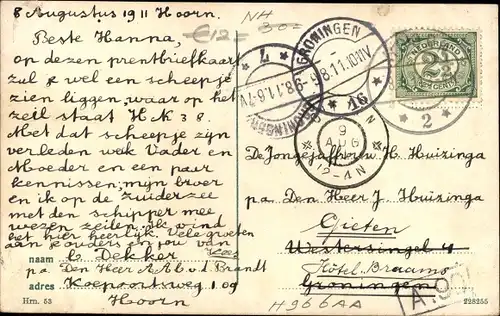 8 Augustus 1911 Hoorn.
Beste Hanna,
op dezen prentbriefkaart
zul je wel een scheepje
zien liggen, waar op het
zeil staat H K 38.
Met dat scheepje zijn
verleden wat Vader en
Moeder en een paar
kennissen, mijn broer
en ik op de Zuiderzee
met den schipper mee
wezen zeilen, ik vind
het hier heerlijk. Vele groeten
aan je ouders en jou van
naam C. Dekker
pa. Den Heer A.A.b.v.d. Brandt
adres Koepoortsweg 109
Hoorn
Hrn. 53
€12=
NH
30=
GRONINGEN
8.11.10-11V
NEDERLAND
2½
CENT
2
9
AUG
12-4N
De Jongejuffrouw H. Huizinga
pa. Den Heer J. Huizinga
Gieten
Westersingel 4
Hôtel Braams
Groningen
H966AA
A.9
228255